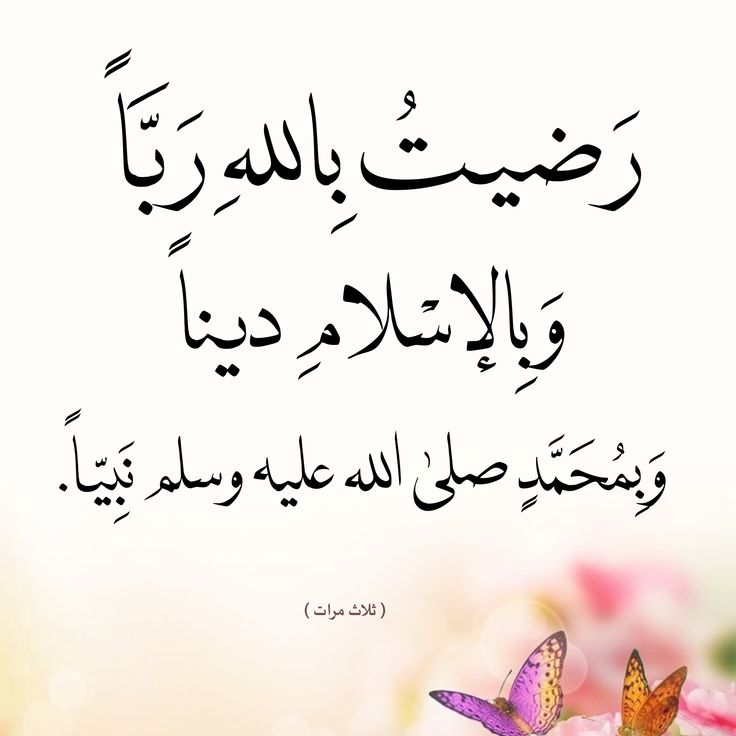 رَضيتُ بِاللهِ رَبَّاً
وَبِالإسْلامِ ديناً
وَبِمُحَمَّدٍ صلىٰ الله عليه وسلم نَبِيّاً.
( ثلاث مرات )